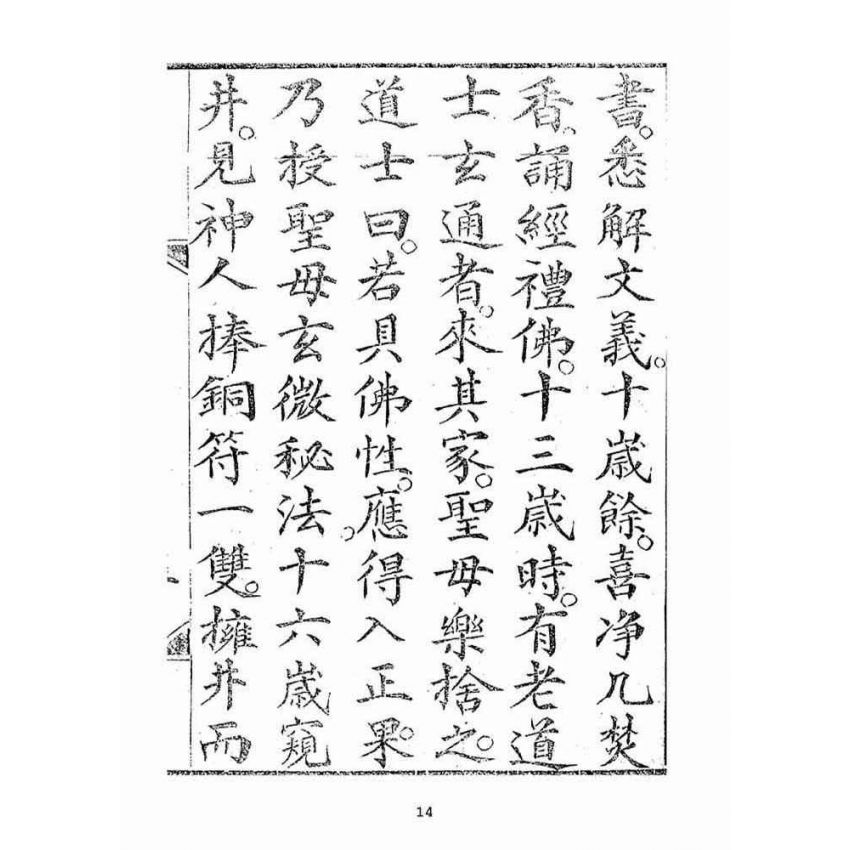 書。悉解文義。十歲餘。喜净几焚
香、誦經禮佛。十三歲時。有老道
士玄通者。來其家。聖母樂捨之。
道士曰。若具佛性。應得入正果。
乃授聖母玄微秘法。十六歲窺
井。見神人捧銅符一雙。擁井而
14